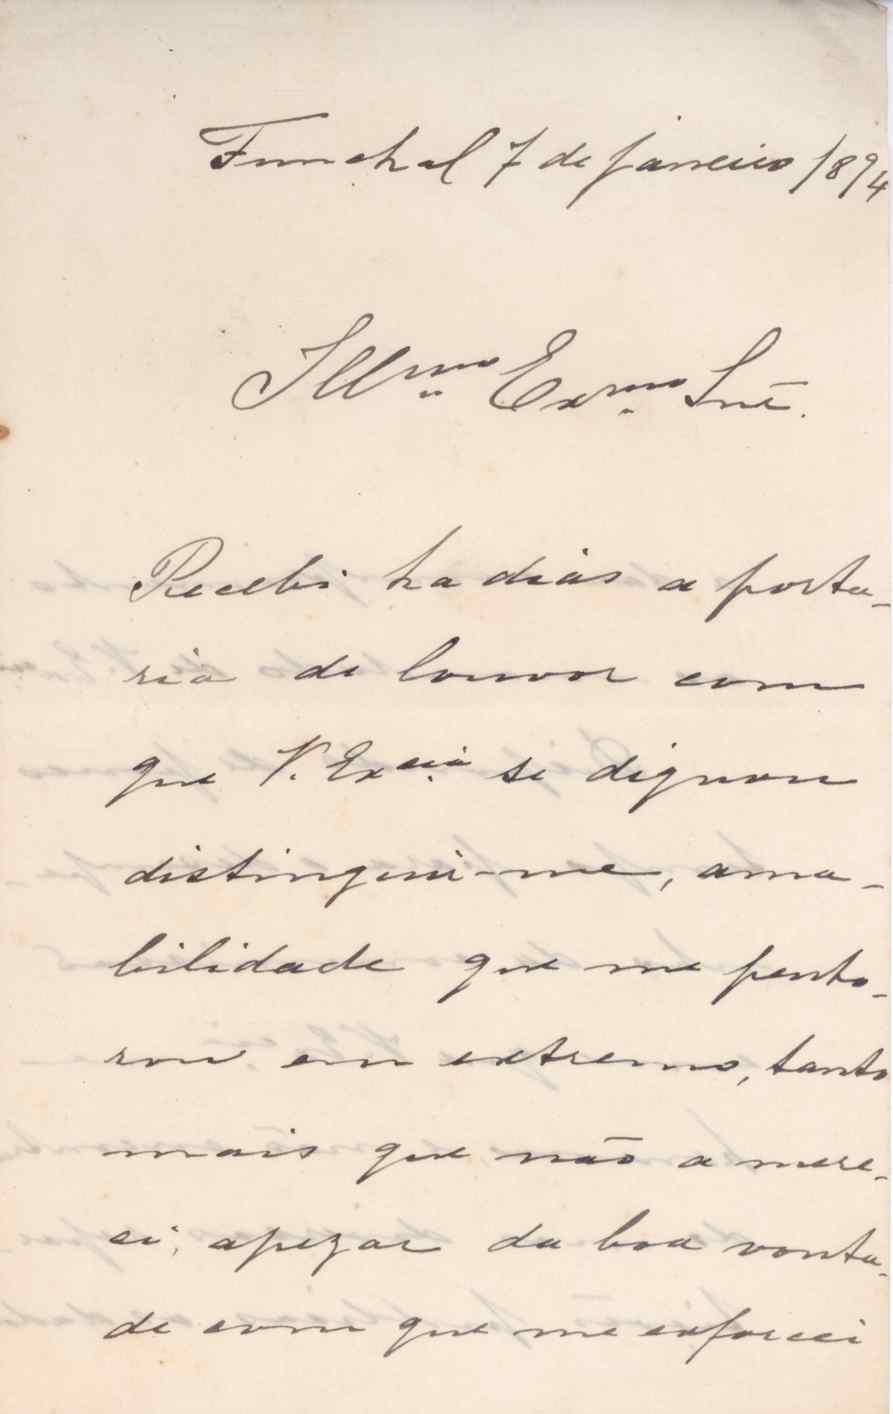 Funchal 7 de janeiro 1894
Illmo Exmo Snr.
Recebi ha dias a porta-
ria de louvor com
que V. Excia se dignou
distinguir-me, ama-
bilidade que me penho-
rou em extremo, tanto
mais que não a mere-
ci, apezar da boa vonta-
de com que me esforcei